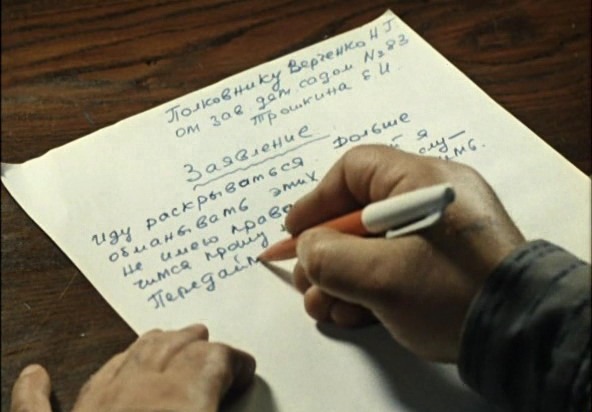 Полковнику Верченко Н Г
от зав дет. садом №83
Трошкина Е И.
Заявление
Иду раскрываться. Дольше
обманывать этих я
не имею права слу-
чится прошу
Передайт